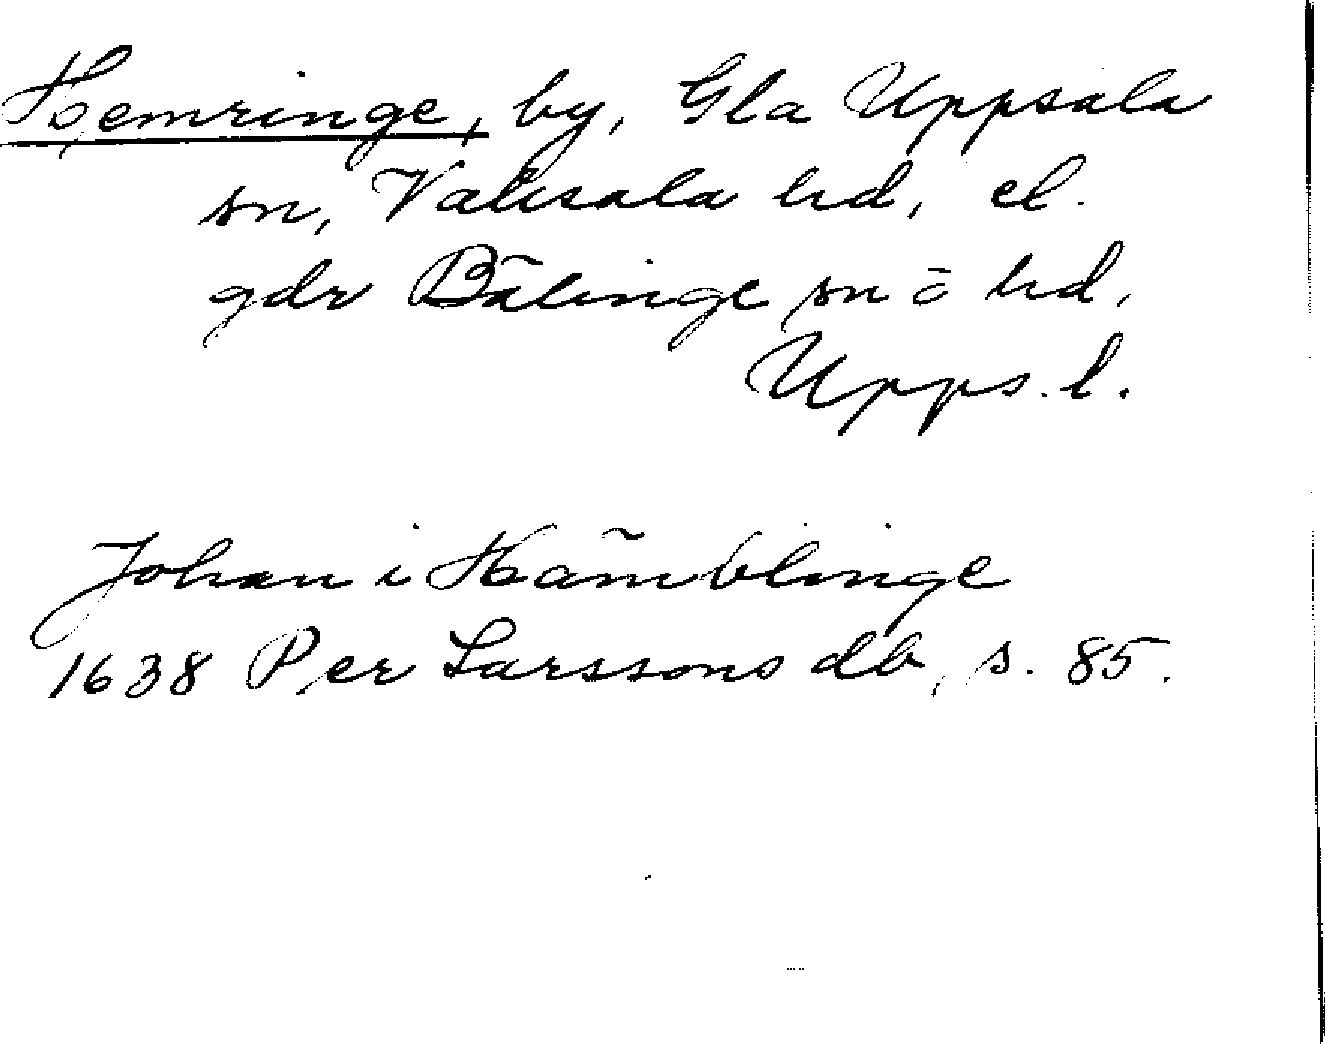 Hemringe, by, Gla Uppsala
sn, Vaksala hd, el.
gdr Bälinge sn o hd,
Upps. l.
Johan i Hämblinge
1638 Per Larssons db, s. 85.